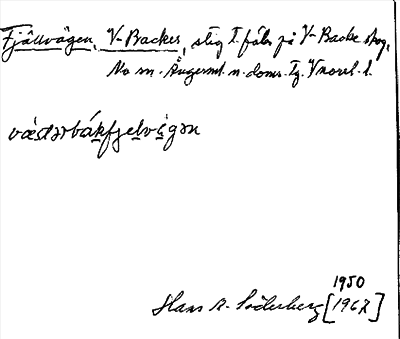 Fjällvägen, V-Backes, stig t. fäb. på V-Backe skog,
No m. Ångerml. n. doms. Tg. Vnorrl. l.
västərbákfjelvägən
1950
Hans A. Söderberg [1967]